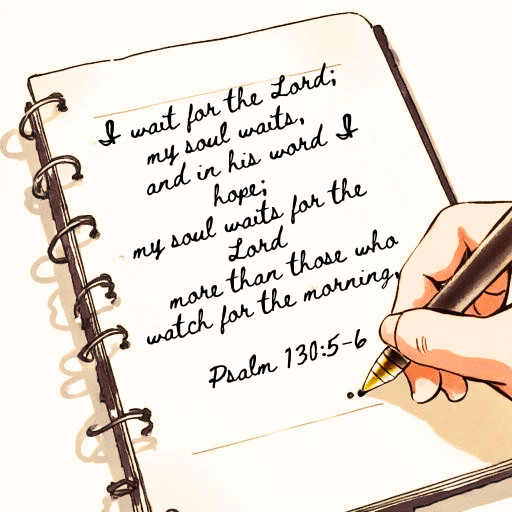 I wait for the Lord;
my soul waits,
and in his word I
hope;
my soul waits for the
Lord
more than those who
watch for the morning,
Psalm 130:5-6